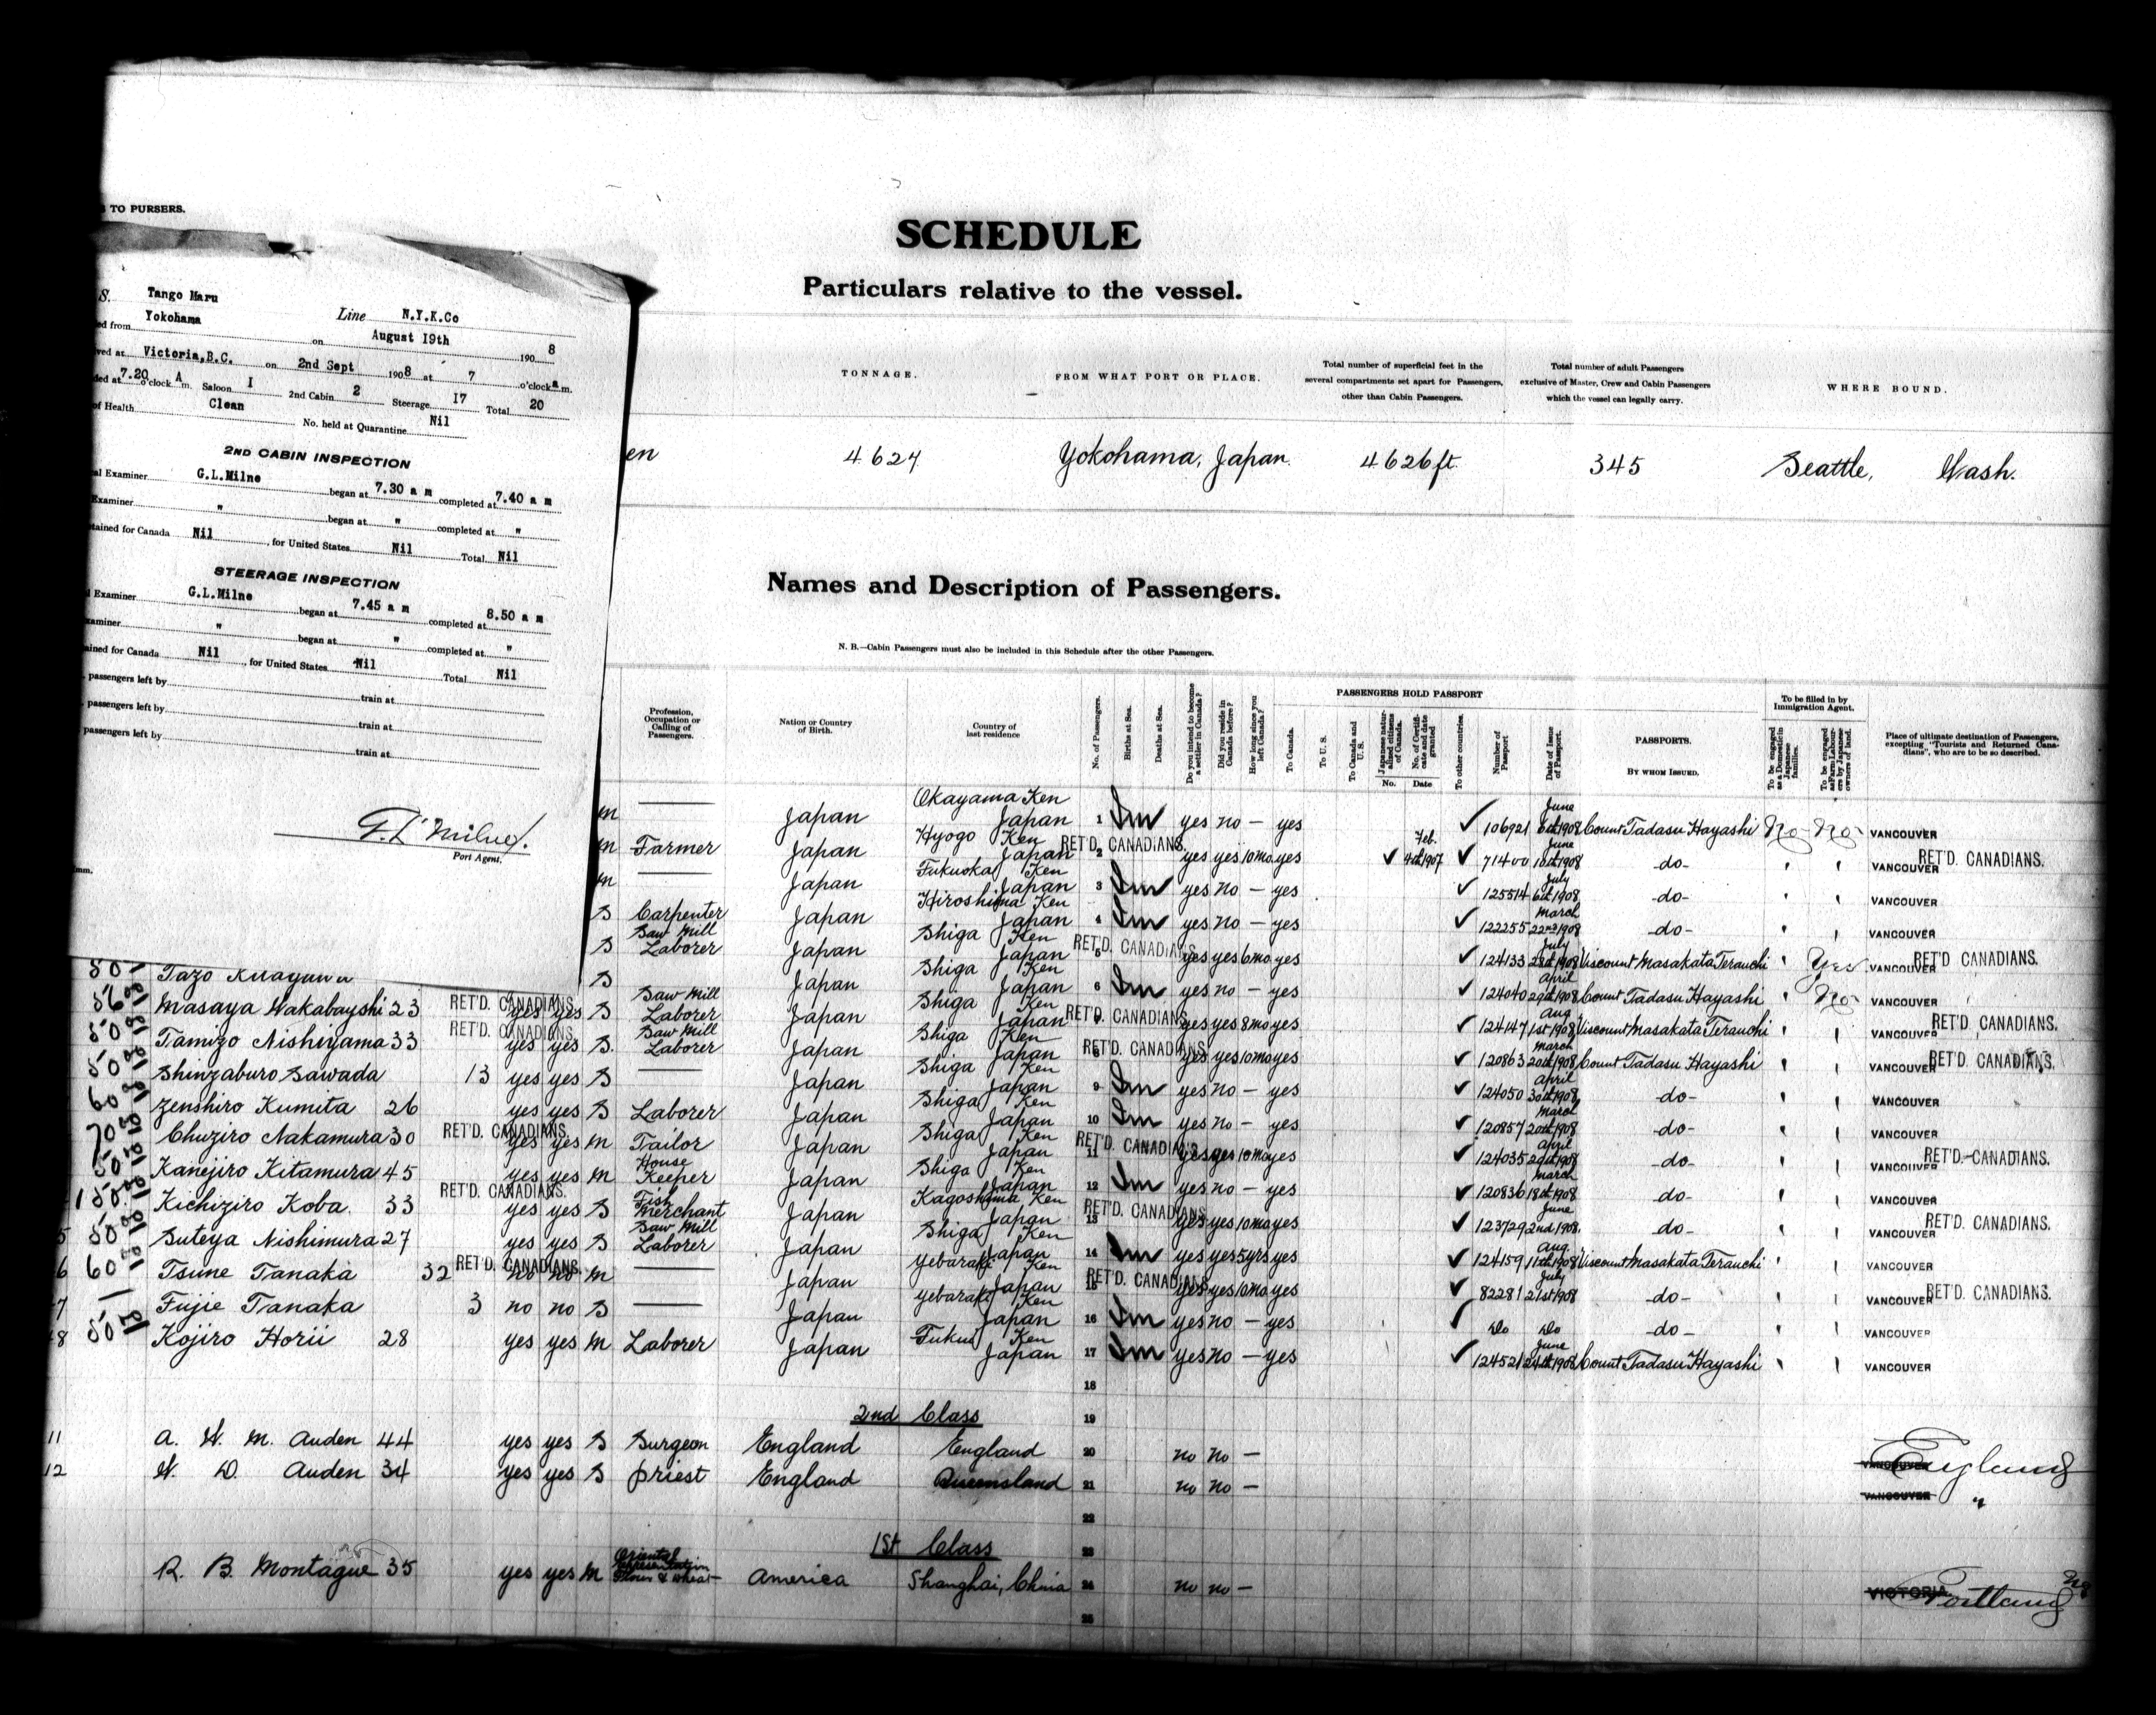 TO PURSERS.
S. Tango Maru Line N.Y.K.Co
ed from Yokohama on August 19th 190 8
ved at Victoria,B.C. on 2nd Sept 1908 at 7 o'clock a m.
ded at 7.20 o'clock A m. Saloon I 2nd Cabin 2 Steerage 17 Total 20
of Health Clean No. held at Quarantine Nil
2ND CABIN INSPECTION
al Examiner G.L.Milne began at 7.30 a m completed at 7.40 a m
Examiner " began at " completed at "
tained for Canada Nil , for United States Nil Total Nil
STEERAGE INSPECTION
l Examiner G.L.Milne began at 7.45 a m completed at 8.50 a m
xaminer " began at " completed at "
ained for Canada Nil , for United States Nil Total Nil
passengers left by train at
passengers left by train at
passengers left by train at
G. L. Milne
Port Agent.
SCHEDULE
Particulars relative to the vessel.
TONNAGE.
FROM WHAT PORT OR PLACE.
Total number of superficial feet in the
several compartments set apart for Passengers,
other than Cabin Passengers.
Total number of adult Passengers
exclusive of Master, Crew and Cabin Passengers
which the vessel can legally carry.
WHERE BOUND.
en 4627 Yokohama, Japan. 4626 ft. 345 Seattle, Wash.
Names and Description of Passengers.
N. B.—Cabin Passengers must also be included in this Schedule after the other Passengers.
Profession, Occupation or Calling of Passengers.
Nation or Country of Birth.
Country of last residence
No. of Passengers.
Births at Sea.
Deaths at Sea.
Do you intend to become a settler in Canada?
Did you reside in Canada before?
How long since you left Canada?
PASSENGERS HOLD PASSPORT
To Canada.
To U. S.
To Canada and U. S.
Japanese naturalized citizens of Canada. No.
No. of Certificate and date granted Date
To other countries.
Number of Passport
Date of Issue of Passport.
PASSPORTS.
BY WHOM ISSUED.
To be filled in by Immigration Agent.
To be engaged as a Domestic in Japanese families.
To be engaged as Farm Labourers by Japanese owners of land.
Place of ultimate destination of Passengers, excepting "Tourists and Returned Canadians", who are to be so described.
m — Japan Okayama Ken Japan 1 yes no — yes 106921 June 6th 1908 Count Tadasu Hayashi No No VANCOUVER
m Farmer Japan Hyogo Ken Japan RET'D. CANADIANS. 2 yes yes 10 mo yes Feb. 4th 1907 71400 June 18th 1908 -do- VANCOUVER RET'D. CANADIANS.
m — Japan Fukuoka Ken Japan 3 yes no — yes 125514 July 6th 1908 -do- VANCOUVER
S Carpenter Japan Hiroshima Ken Japan 4 yes no — yes 122255 March 22nd 1908 -do- VANCOUVER
S Saw Mill Laborer Japan Shiga Ken Japan RET'D. CANADIANS 5 yes yes 6 mo yes 124133 July 28th 1908 Viscount Masakata Terauchi Yes VANCOUVER RET'D CANADIANS.
50 Tazo S Japan Shiga Ken Japan 6 yes no — yes 124040 April 29th 1908 Count Tadasu Hayashi No VANCOUVER
Masaya Wakabayshi 23 RET'D. CANADIANS. yes yes S Saw Mill Laborer Japan Shiga Ken Japan RET'D. CANADIANS. yes yes 8 mo yes 124147 Aug 1st 1908 Viscount Masakata Terauchi VANCOUVER RET'D. CANADIANS.
50 Tamizo Nishiyama 33 RET'D. CANADIANS. yes yes S. Saw Mill Laborer Japan Shiga Ken Japan RET'D. CANADIANS. 8 yes yes 10 mo yes 120863 March 20th 1908 Count Tadasu Hayashi VANCOUVER RET'D. CANADIANS.
50 Shinzaburo Sawada 13 yes yes S — Japan Shiga Ken Japan 9 yes no — yes 124050 April 30th 1908 -do- VANCOUVER
60 Zenshiro Kumita 26 yes yes S Laborer Japan Shiga Ken Japan 10 yes no — yes 120857 March 20th 1908 -do- VANCOUVER
70 Chuziro Nakamura 30 RET'D. CANADIANS. yes yes m Tailor Japan Shiga Ken Japan RET'D. CANADIANS 11 yes yes 10 mo yes 124035 April 29th 1908 -do- VANCOUVER RET'D. CANADIANS.
50 Kanejiro Kitamura 45 yes yes m House Keeper Japan Shiga Ken Japan 12 yes no — yes 120836 March 18th 1908 -do- VANCOUVER
150 Kichiziro Koba. 33 RET'D. CANADIANS. yes yes S Fish Merchant Japan Kagoshima Ken Japan RET'D. CANADIANS 13 yes yes 10 mo yes 123729 June 2nd 1908. -do- VANCOUVER RET'D. CANADIANS.
5 50 Suteya Nishimura 27 yes yes S Saw Mill Laborer Japan Shiga Ken Japan 14 yes yes 5 yrs yes 124159 Aug. 11th 1908 Viscount Masakata Terauchi VANCOUVER
6 60 Tsune Tanaka 32 RET'D. CANADIANS. no no m — Japan Yebaraki Ken Japan RET'D. CANADIANS 15 yes yes 10 mo yes 82281 July 21st 1908 -do- VANCOUVER RET'D. CANADIANS.
7 Fujie Tanaka 3 no no S — Japan Yebaraki Ken Japan 16 yes no — yes Do Do -do- VANCOUVER
8 50 Kojiro Horii 28 yes yes m Laborer Japan Fukui Ken Japan 17 yes no — yes 124521 June 24th 1908 Count Tadasu Hayashi VANCOUVER
18
2nd Class 19
11 A. W. M. Auden 44 yes yes S Surgeon England England 20 no no — VANCOUVER England
12 W. D. Auden 34 yes yes S priest England Queensland 21 no no — VANCOUVER "
22
1st Class 23
R. B. Montague 35 yes yes m Oriental Representation Flour & Wheat America Shanghai, China 24 no no — VICTORIA Portland
25